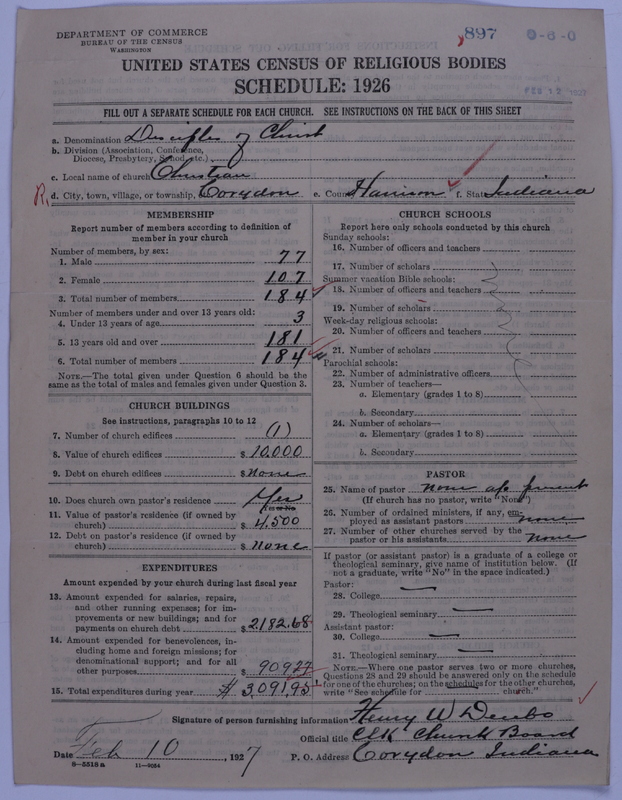 DEPARTMENT OF COMMERCE
BUREAU OF THE CENSUS
WASHINGTON
897
0-6-0
UNITED STATES CENSUS OF RELIGIOUS BODIES
SCHEDULE: 1926
FEB 12 1927
FILL OUT A SEPARATE SCHEDULE FOR EACH CHURCH. SEE INSTRUCTIONS ON THE BACK OF THIS SHEET
a. Denomination Disciples of Christ
b. Division (Association, Conference, Diocese, Presbytery, Synod, etc.)
c. Local name of church Christian
R. d. City, town, village, or township, Corydon e. County Harrison f. State Indiana
MEMBERSHIP
Report number of members according to definition of member in your church
Number of members, by sex:
1. Male 77
2. Female 107
3. Total number of members 184
Number of members under and over 13 years old:
4. Under 13 years of age 3
5. 13 years old and over 181
6. Total number of members 184
NOTE.—The total given under Question 6 should be the same as the total of males and females given under Question 3.
CHURCH BUILDINGS
See instructions, paragraphs 10 to 12
7. Number of church edifices (1)
8. Value of church edifices $ 10.000
9. Debt on church edifices $ none
10. Does church own pastor's residence Yes
Yes or No
11. Value of pastor's residence (if owned by church) $ 4,500
12. Debt on pastor's residence (if owned by church) $ none
EXPENDITURES
Amount expended by your church during last fiscal year
13. Amount expended for salaries, repairs, and other running expenses; for improvements or new buildings; and for payments on church debt $ 2,182.68
14. Amount expended for benevolences, including home and foreign missions; for denominational support; and for all other purposes $ 909.27
15. Total expenditures during year $ 3,091.95
CHURCH SCHOOLS
Report here only schools conducted by this church
Sunday schools:
16. Number of officers and teachers
17. Number of scholars
Summer vacation Bible schools:
18. Number of officers and teachers
19. Number of scholars
Week-day religious schools:
20. Number of officers and teachers
21. Number of scholars
Parochial schools:
22. Number of administrative officers
23. Number of teachers—
a. Elementary (grades 1 to 8)
b. Secondary
24. Number of scholars—
a. Elementary (grades 1 to 8)
b. Secondary
none
PASTOR
25. Name of pastor none at present
(If church has no pastor, write "None")
26. Number of ordained ministers, if any, employed as assistant pastors none
27. Number of other churches served by the pastor or his assistants none
If pastor (or assistant pastor) is a graduate of a college or theological seminary, give name of institution below. (If not a graduate, write "No" in the space indicated.)
Pastor:
28. College —
29. Theological seminary —
Assistant pastor:
30. College —
31. Theological seminary —
NOTE.—Where one pastor serves two or more churches, Questions 28 and 29 should be answered only on the schedule for one of the churches; on the schedules for the other churches, write "See schedule for church."
Signature of person furnishing information Henry W Dembo
Official title Clk Church Board
Date Feb 10 1927 P. O. Address Corydon Indiana
8-5518 a 11-9084